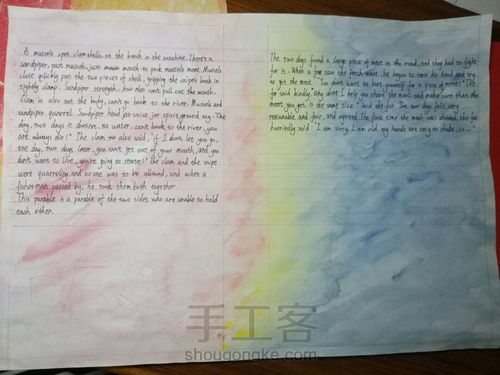 A mussels open clam shells, on the beach in the sunshine. There's a
sandpiper, past mussels, just mouth to peck mussels more. Mussels
close quickly put the two pieces of shell, gripping the snipe's beak in
tightly clamp. Sandpiper strength, how also can't pull out the mouth.
Clam is also not the body, can't go back to the river. Mussels and
sandpiper quarrel. Sandpiper voice, for spirit ground say: "The
day, two days it doesn't, no water, can't back to the river, you
are always die!" The clam are also said, "if I don't let you go,
one day, two days later, you can't get out of your mouth, and you
don't want to live, you're going to starve!" The clam and the snipe
were quarrelling and no one was to be allowed, and when a
fisherman passed by, he took them both together.
This parable is a parable of the two sides who are unable to hold
each other.
The two dogs found a large piece of meat in the wood, and they had to fight
for it. When a fox saw the fresh meat, he began to turn his head and try
to get the meat. "You don't want to hurt yourself for a piece of meat!" The
fox said kindly. "Why don't I help you share the meat and make sure that the
meat you get is the same size." Said the fox. The two dogs felt very
reasonable and fair, and agreed. The first time the meat was divided, the fox
hurriedly said: "I am sorry, I am old, my hands are easy to shake, so..."
手工客
shougongke.com